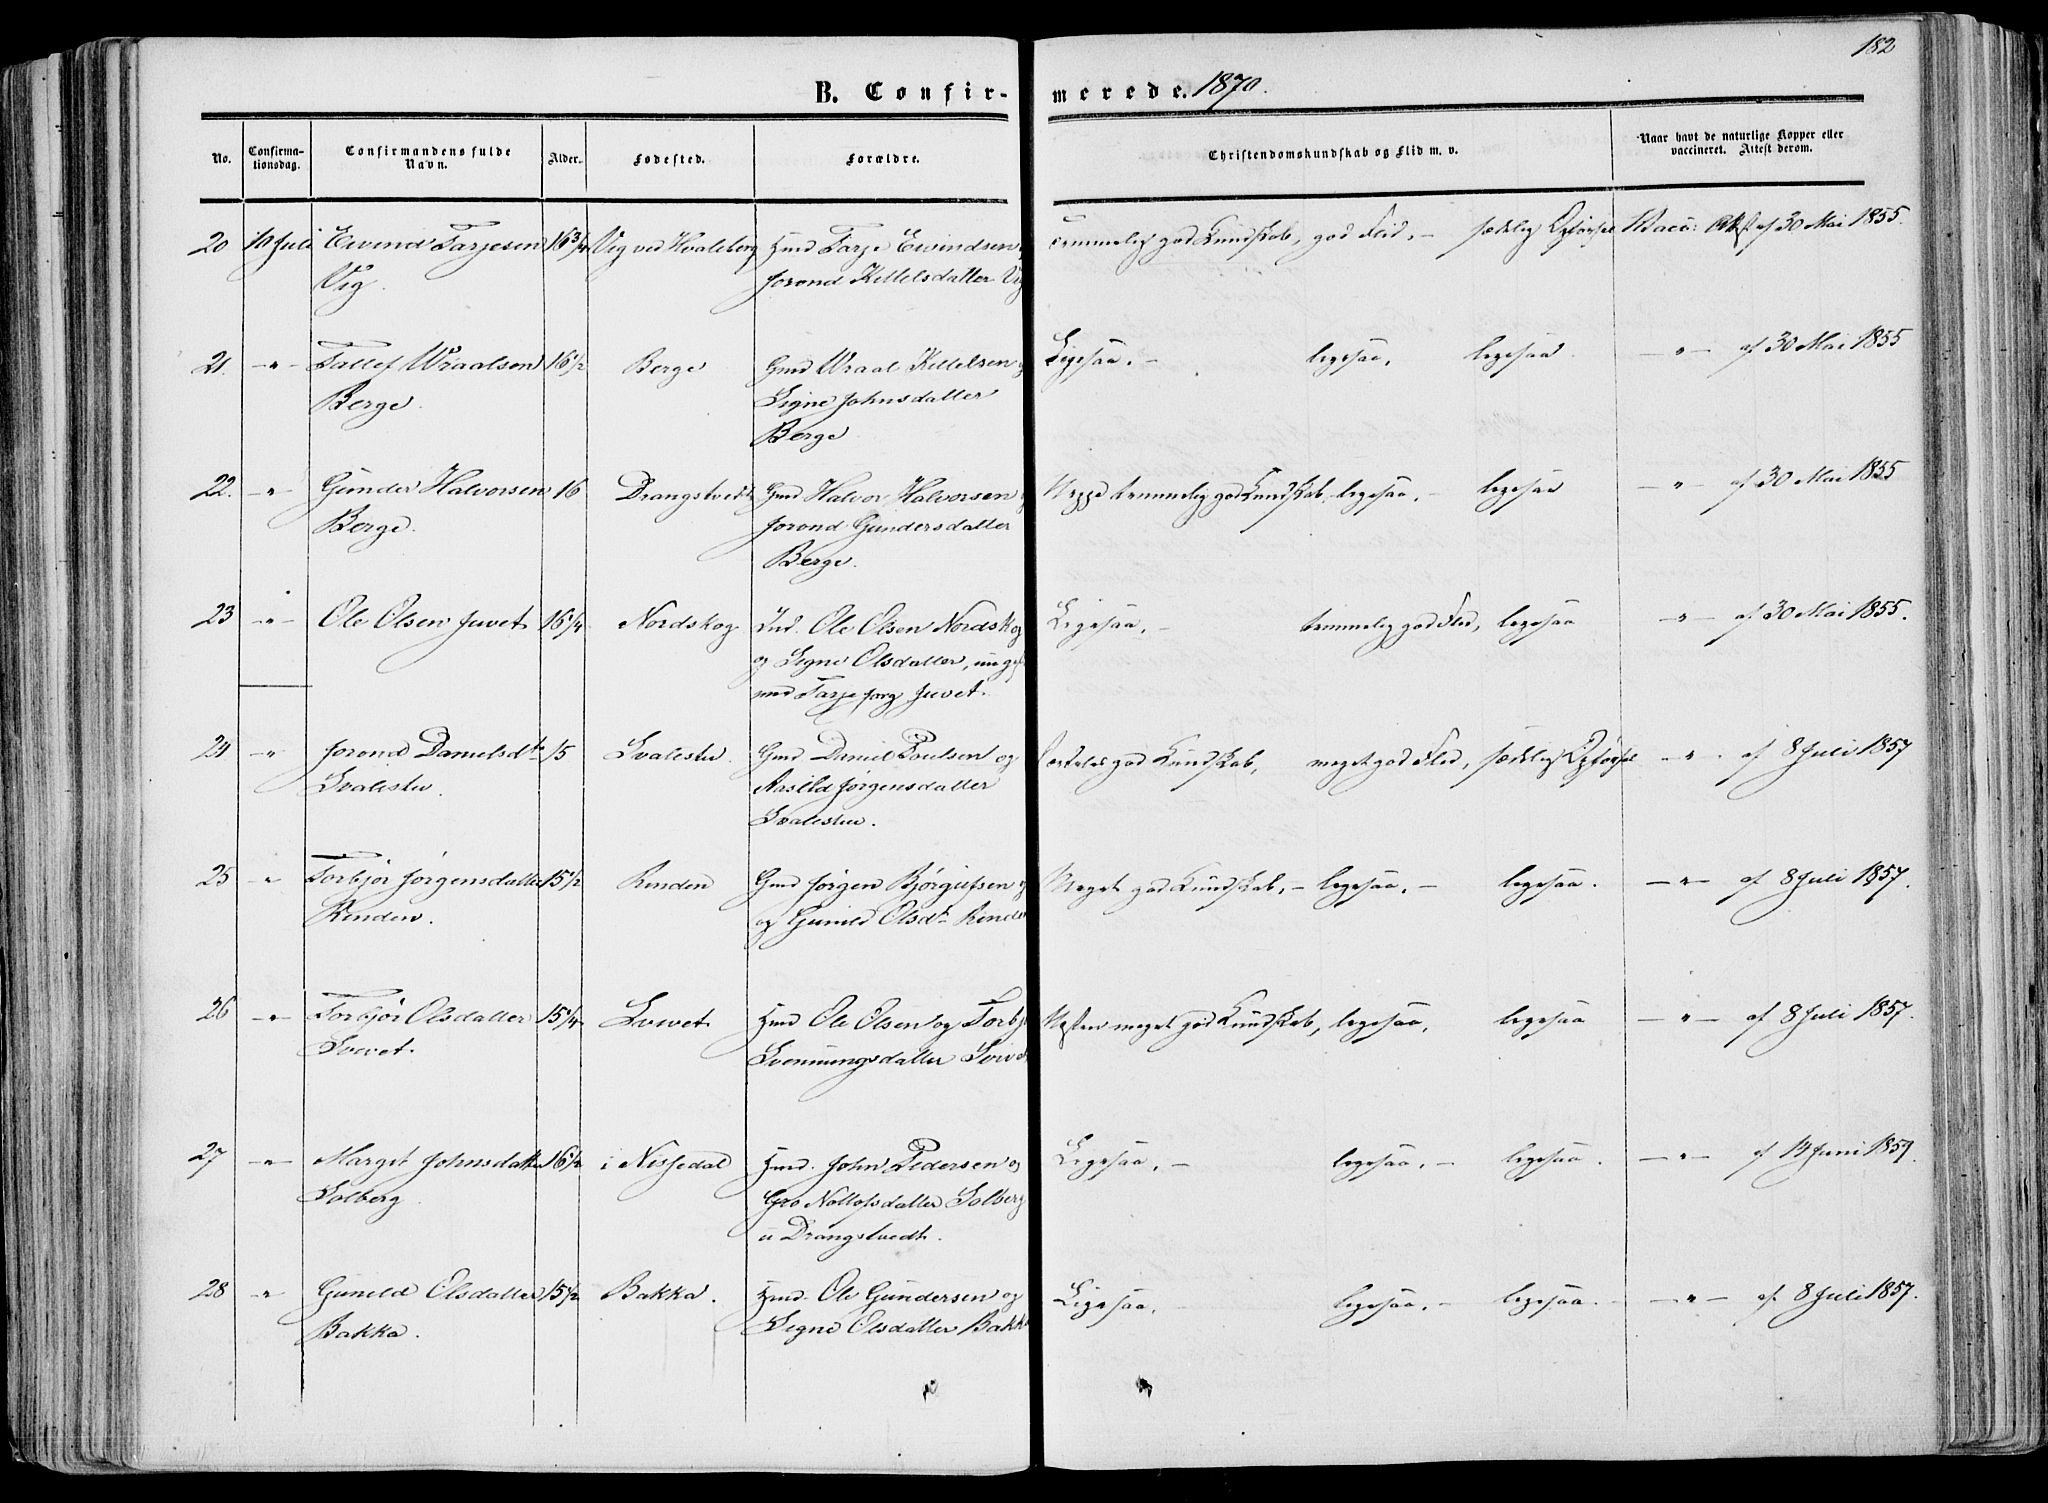 182
B. Confirmerede. 1870.
No. Confirmationsdag. Confirmandens fulde Navn. Alder. Fødested. Forældre. Christendomskundskab og Flid m. v. Naar havt de naturlige Kopper eller vaccineret. Attest derom.
20 10 Juli Eivind Tarjesen 16 3/4 Vig ved Hvaleberg Hmd Tarje Eivindsen Temmelig god Kundskab, god Flid, – sædelig Opførsel Vacc: Att. af 30 Mai 1855.
Vig. Jorond Kittelsdatter Vig
21. –"– Tallef Wraalsen 16 1/2 Berge Gmd Wraal Kittelsen og Ligesaa. – ligesaa, ligesaa –"– af 30 Mai 1855
Berge. Signe Johnsdatter
Berge
22. –"– Gunder Halvorsen 16 Drangstvedt Gmd Halvor Halvorsen og Neppe temmelig god Kundskab, – ligesaa, – ligesaa –"– af 30 Mai 1855
Berge. Jorond Gundersdatter
Berge.
23 –"– Ole Olsen Juvet 16 1/4 Nordskog Ind. Ole Olsen Nordskog Ligesaa, – temmelig god Flid, ligesaa –"– af 30 Mai 1855.
og Signe Olsdatter,
Tarje Juvet.
24 –"– Jorond Danielsdtr 15 Svalestu. Gmd. Daniel Poulsen og god Kundskab, meget god Flid, sædelig Opførsel –"– af 8 Juli 1857
Svalestu. Aasild Jørgensdatter
Svalestu.
25 –"– Torbjør Jørgensdatter 15 1/2 Rinden Gmd Jørgen Bjørgufsen og Meget god Kundskab, – ligesaa, – ligesaa. –"– af 8 Juli 1857.
Rinden. og Gunild Olsdtr Rinden
26 –"– Torbjør Olsdatter 15 1/4 Svevet Hmd Ole Olsen og Torbjør Næsten meget god Kundskab, ligesaa, ligesaa –"– af 8 Juli 1857.
Svevet. Svenningsdatter
27 –"– Margit Johnsdatter 16 1/2 i Nissedal Hmd. John Pedersen og Ligesaa, – ligesaa, – ligesaa. –"– af 14 Juni 1859.
Solberg Gro Nottofsdatter Solberg
u Drangstvedt.
28 –"– Gunild Olsdatter 15 1/2 Bakka. Hmd. Ole Gundersen og Ligesaa, – ligesaa. – ligesaa. – –"– af 8 Juli 1857.
Bakka. Signe Olsdatter Bakka